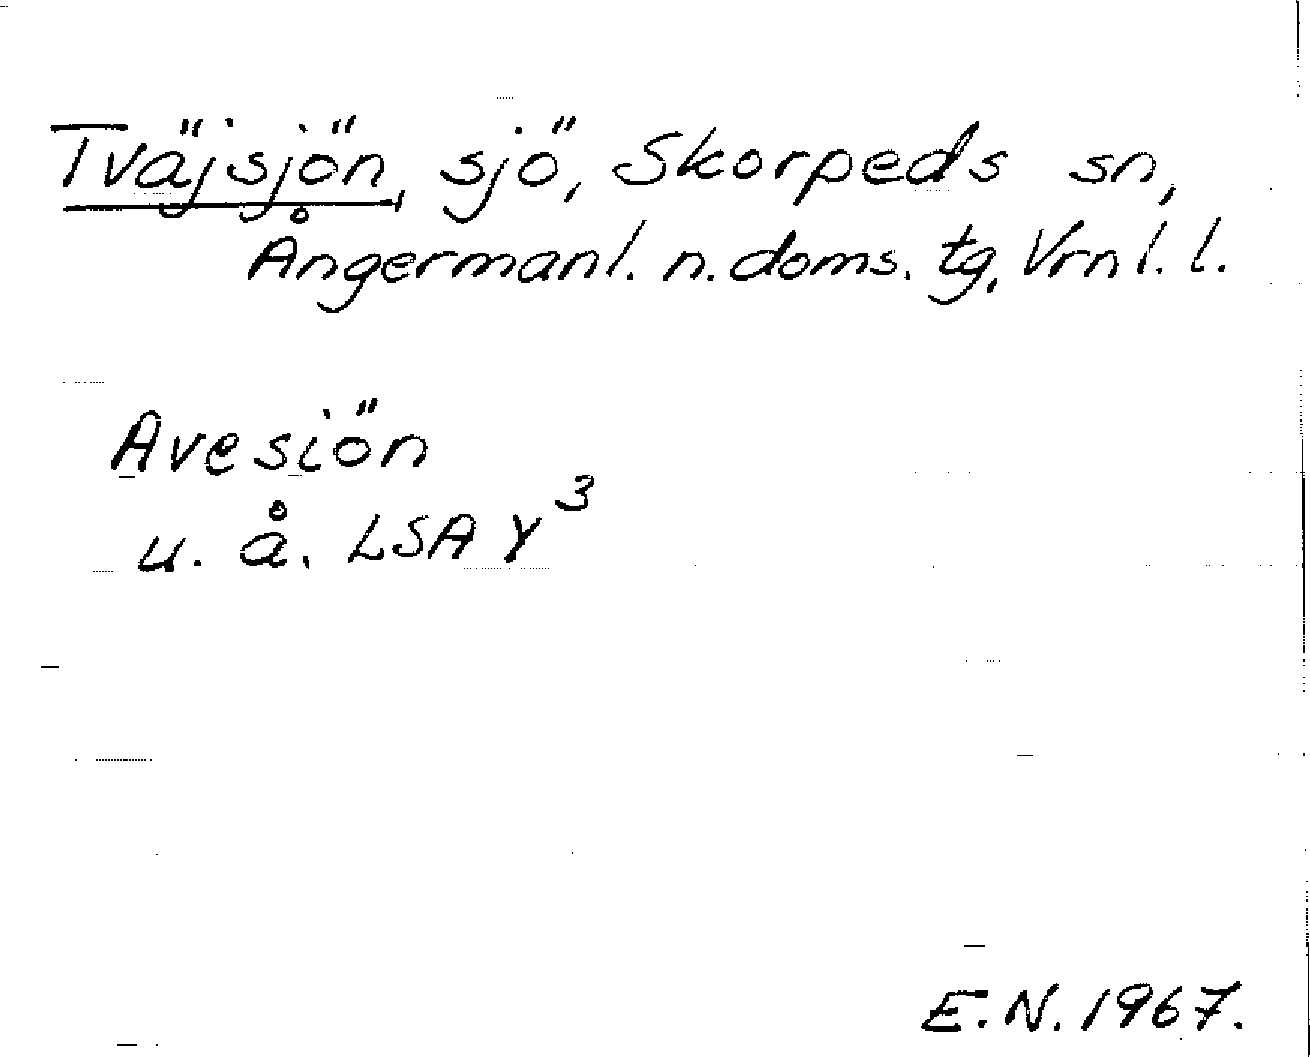 Tväjsjön, sjö, Skorpeds sn,
Ångermanl. n. doms. tg, Vrnl. l.
Avesiön
u. å. LSA Y3
E.N. 1967.